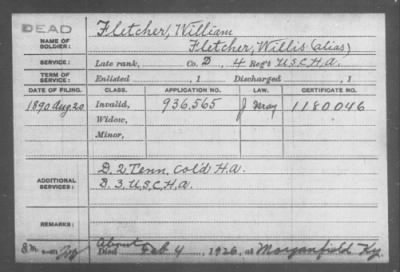 DEAD
NAME OF SOLDIER: Fletcher, William
Fletcher, Willis (alias)
SERVICE: Late rank, Co. D, 4 Reg't U.S.C.H.A.
TERM OF SERVICE: Enlisted , 1 Discharged , 1
DATE OF FILING. CLASS. APPLICATION NO. LAW. CERTIFICATE NO.
1890 Aug 20 Invalid, 936,565 1180046
Widow,
Minor,
ADDITIONAL SERVICES: D. 2 Tenn. Col'd H.A.
D. 3. U.S.C.H.A.
REMARKS:
About
Died Feb. 4, 1926, at Morganfield Ky.